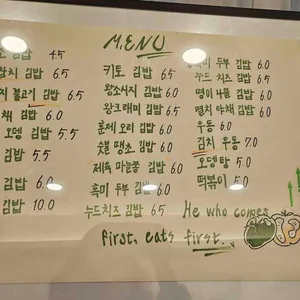 MENU
김밥 4.5
참치 김밥 6.5
불고기 김밥 6.5
김밥 6.0
오뎅 김밥 5.5
김밥 5.5
김밥 6.0
김밥 10.0
키토 김밥 6.5
왕소시지 김밥 6.5
왕크래미 김밥 6.5
훈제 오리 김밥 6.0
숯불 땡초 김밥 6.0
제육 마늘쫑 김밥 6.0
흑미 두부 김밥 6.0
누드치즈 김밥 6.5
두부 김밥 6.0
누드 치즈 김밥 6.5
명이 나물 김밥 6.0
멸치 야채 김밥 6.0
우동 6.0
김치 우동 7.0
오뎅탕 5.0
떡볶이 5.0
He who comes
first, eats first.